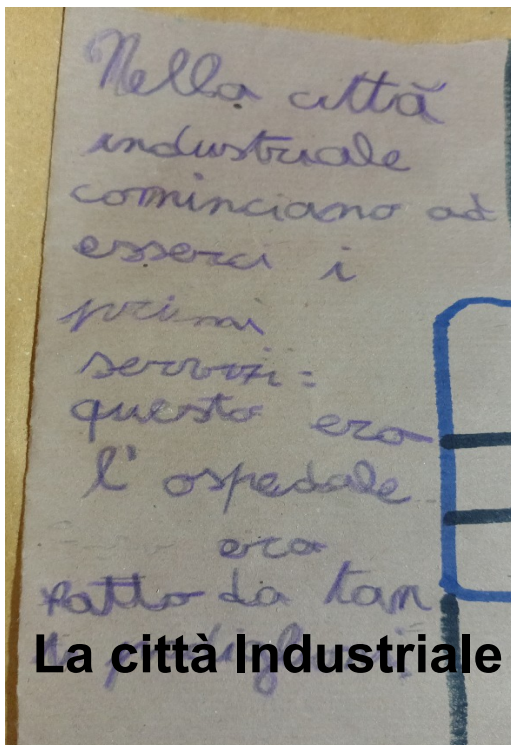 Nella città
industriale
cominciano ad
esserci i
primi
servizi:
questo era
l' ospedale
era
fatto da tan
ti padiglioni
La città Industriale